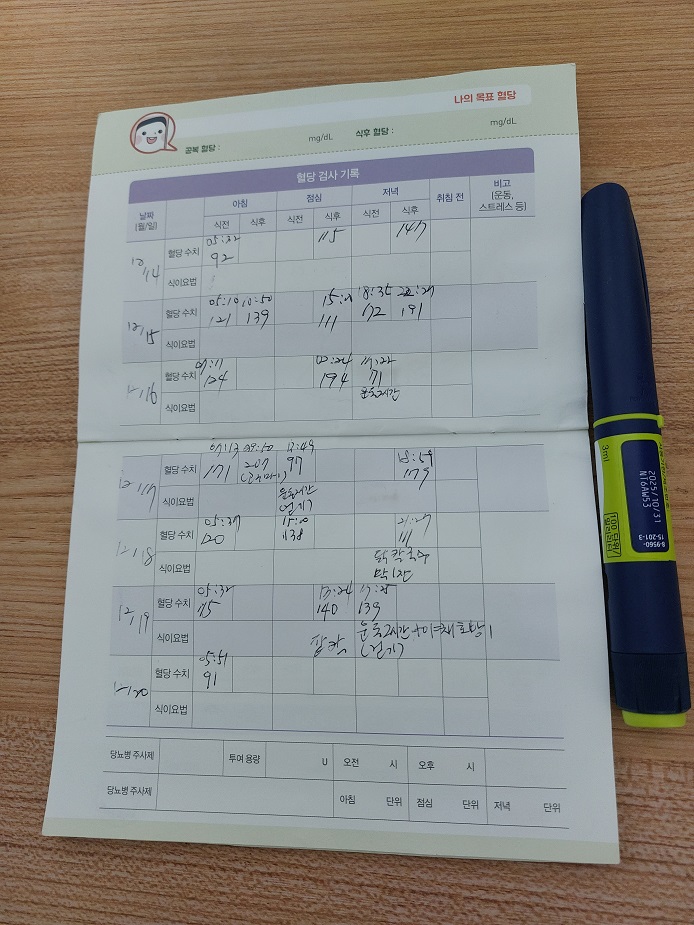 나의 목표 혈당
공복 혈당 : mg/dL 식후 혈당 : mg/dL
혈당 검사 기록
날짜 (월/일) 아침 점심 저녁 취침 전 비고 (운동, 스트레스 등)
식전 식후 식전 식후 식전 식후
12/14 혈당 수치 05:32 92 115 147
식이요법
12/15 혈당 수치 05:10 121 10:50 139 111 18:35 172 191
식이요법
12/16 혈당 수치 07:11 124 194 17:22 171
식이요법 운동2시간
12/17 혈당 수치 07:13 171 09:50 207 97 18:59 179
식이요법 운동2시간 걷기
12/18 혈당 수치 05:37 120 138 21:27 111
식이요법 닭칼국수
막1잔
12/19 혈당 수치 05:32 115 17:24 140 139
식이요법 팥칼 운동2시간+야채호빵1
(걷기)
12/20 혈당 수치 05:51 91
식이요법
당뇨병 주사제 투여 용량 U 오전 시 오후 시
당뇨병 주사제 아침 단위 점심 단위 저녁 단위
3ml
100단위/
밀리리터
2025/10/31
NT6AW53
8-9560-
15-201-3